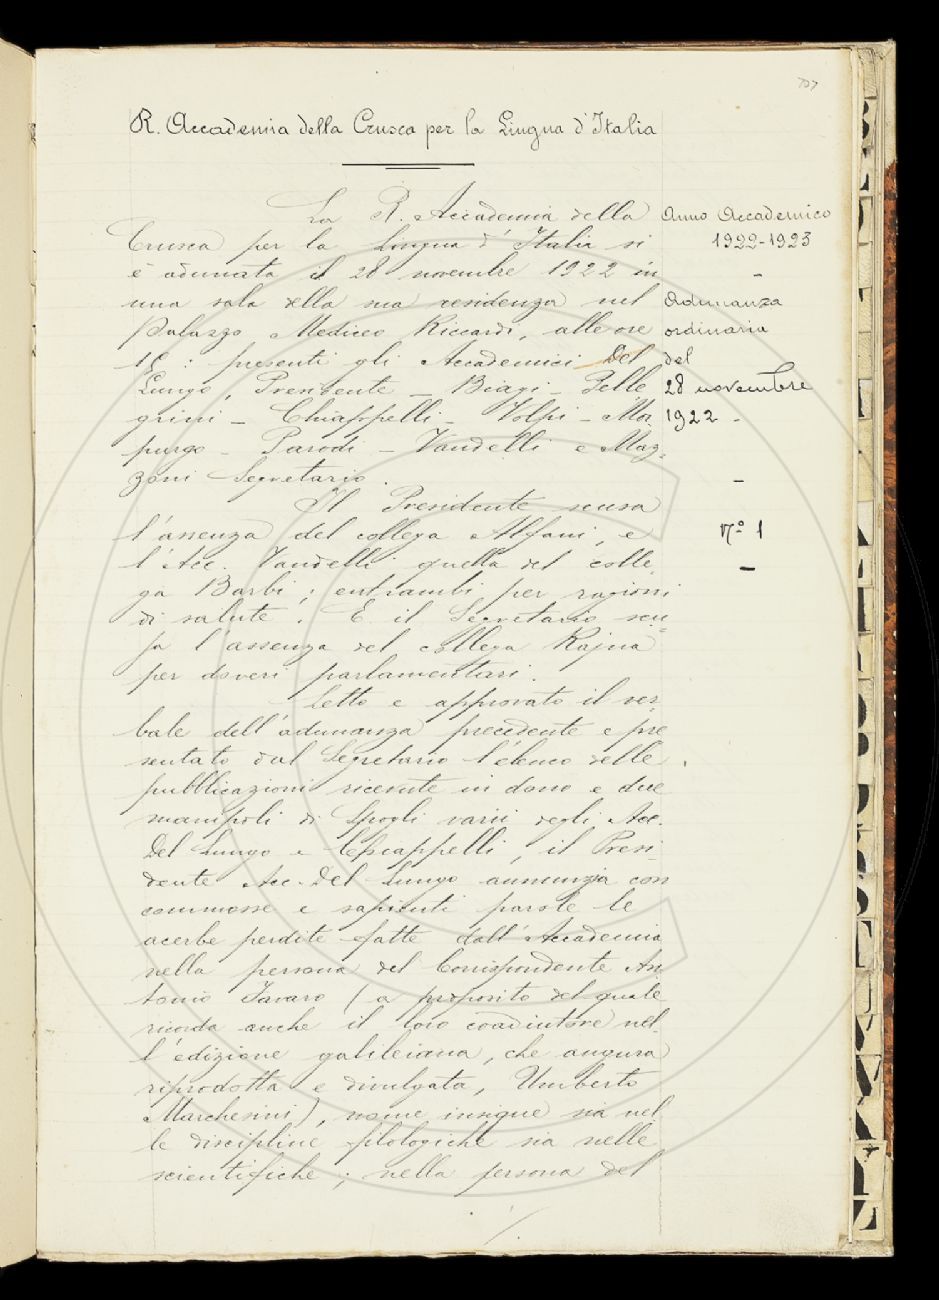 707
R. Accademia della Crusca per la Lingua d'Italia
La R. Accademia della
Crusca per la Lingua d'Italia si
è adunata il 28 novembre 1922 in
una sala della sua residenza nel
Palazzo Mediceo Riccardi, alle ore
15: presenti gli Accademici Del
Lungo, Presidente - Biagi - Pelle
grini - Chiappelli - Volpi - Mor
purgo - Parodi - Vandelli e Maz-
zoni Segretario.
Il Presidente scusa
l'assenza del collega Alfani, e
l'Acc. Vandelli quella del colle-
ga Barbi; entrambi per ragioni
di salute. E il Segretario scu-
sa l'assenza del collega Rajna
per doveri parlamentari.
Letto e approvato il ver-
bale dell'adunanza precedente e pre
sentato dal Segretario l'elenco delle
pubblicazioni ricevute in dono e due
manipoli di Spogli varii degli Acc.
Del Lungo e Chiappelli, il Presi-
dente Acc. Del Lungo annunzia con
commosse e sapienti parole le
acerbe perdite fatte dall'Accademia
nella persona del Corrispondente An
tonio Favaro (a proposito del quale
ricorda anche il loro coadiutore nel-
l'edizione galileiana, che augura
riprodotta e divulgata, Umberto
Marchesini), nome insigne sia nel
le discipline filologiche sia nelle
scientifiche; nella persona del
Anno Accademico
1922-1923
-
Adunanza
ordinaria
del
28 novembre
1922 -
-
N.° 1
-